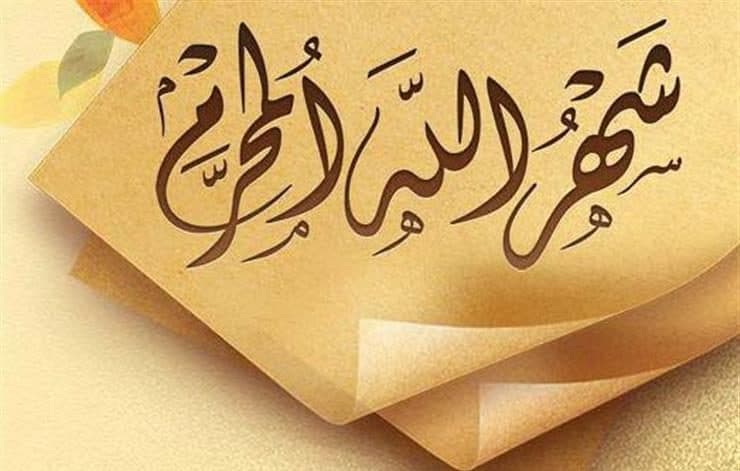 شَهْرُ اللَّهِ الْمُحَرَّمِ